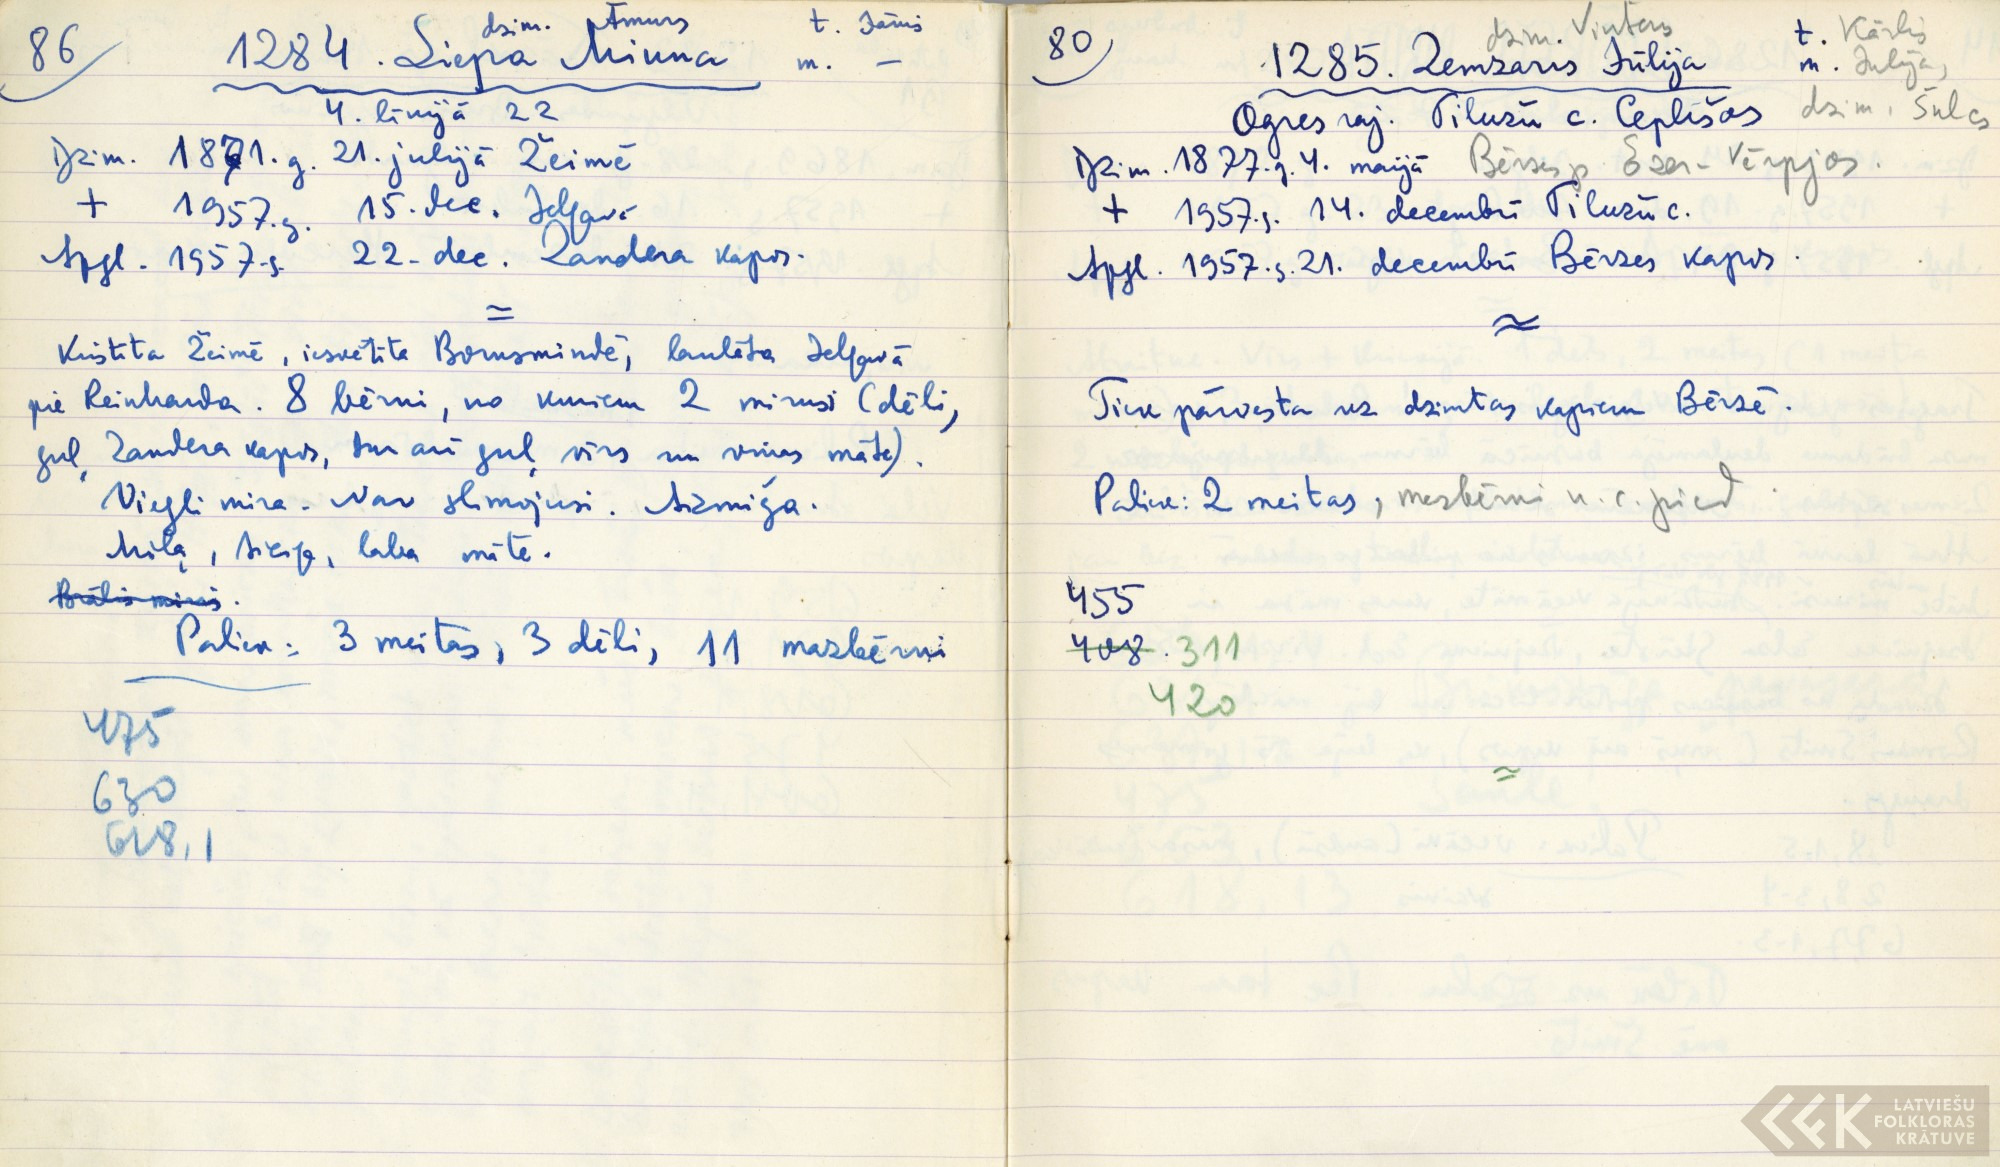 86
dzim. Amurs
1284. Liepa Minna
t. Jānis
m. —
4. līnijā 22
Dzim. 1871. g. 21. jūlijā Žeimē
+ 1957. g. 15. dec. Jelgavā
Apgl. 1957. g. 22. dec. Zandera kapos.
=
Kristīta Žeimē, iesvētīta Bornsmindē, laulāta Jelgavā
pie Reinharda. 8 bērni, no kuriem 2 miruši (dēli,
guļ Zandera kapos, tur arī guļ vīrs un viņas māte).
Viegli mira. Nav slimojusi. Aizmiga.
Mīļa, sirsnīga, laba māte.
Brālis miris.
Paliek: 3 meitas, 3 dēli, 11 mazbērni
475
630
618,1
80
dzim. Vinters
1285. Zemzaris Jūlija
t. Kārlis
m. Jūlija,
dzim. Šulcs
Ogres raj. Tīlužu c. Ceplīšos
Dzim. 1877. g. 4. maijā Bērzes p. Ezer-Vērpjos.
+ 1957. g. 14. decembrī Tīlužu c.
Apgl. 1957. g. 21. decembrī Bērzes kapos.
≈
Tiek pārvesta uz dzimtas kapiem Bērzē.
Paliek: 2 meitas, mazbērni u. c. pied.
455
408. 311
420
=
LATVIEŠU
FOLKLORAS
KRĀTUVE